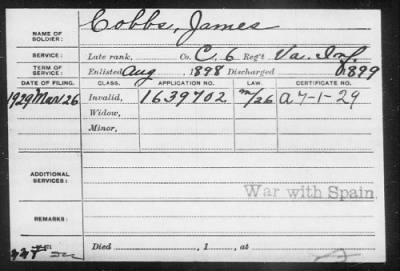 NAME OF SOLDIER: Cobbs, James
SERVICE: Late rank, Co. C. 6 Reg't Va. Inf.
TERM OF SERVICE: Enlisted Aug, 1898 Discharged 1899
DATE OF FILING. CLASS. APPLICATION NO. LAW. CERTIFICATE NO.
1929 Mar 26 Invalid, 1639702 m/26 a 7-1-29
Widow,
Minor,
ADDITIONAL SERVICES:
War with Spain
REMARKS:
Died , 1 , at